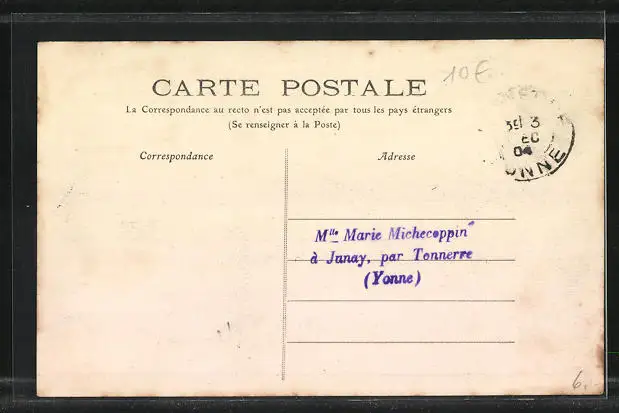 10€
CARTE POSTALE
La Correspondance au recto n'est pas acceptée par tous les pays étrangers
(Se renseigner à la Poste)
Correspondance
Adresse
3
04
YONNE
Mlle Marie Michecoppin
à Junay, par Tonnerre
(Yonne)
6.